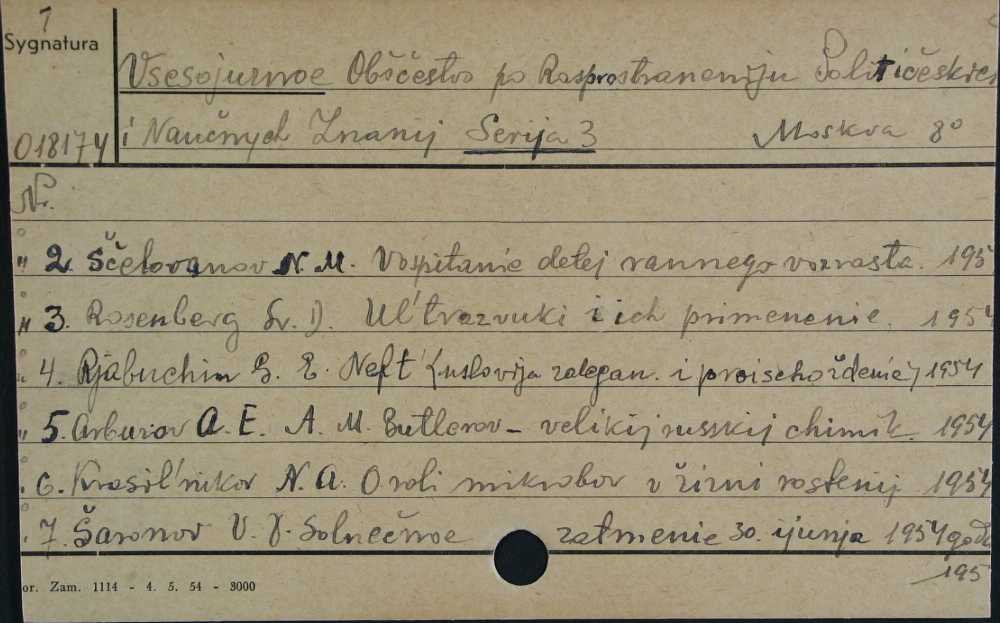 T
Sygnatura
Vsesojuznoe Obščestvo po Rasprostraneniju Političeskich
018174 i Naučnych Znanij Serija 3 Moskva 8°
Nr.
" 2. Ščelovanov N. M. Vospitanie detej rannego vozrasta. 195
" 3. Rosenberg L. D. Ul'trazvuki i ich primenenie. 1954
" 4. Rjabuchin G. E. Neft' (uslovija zalegan. i proischoždenie) 1954
" 5. Arbuzov A. E. A. M. Butlerov - velikij russkij chimik. 1954
" 6. Krasil'nikov N. A. O roli mikrobov v žizni rastenij 1954
" 7. Šaronov V. V. Solnečnoe zatmenie 30. ijunja 1954 goda
195
or. Zam. 1114 - 4. 5. 54 - 3000